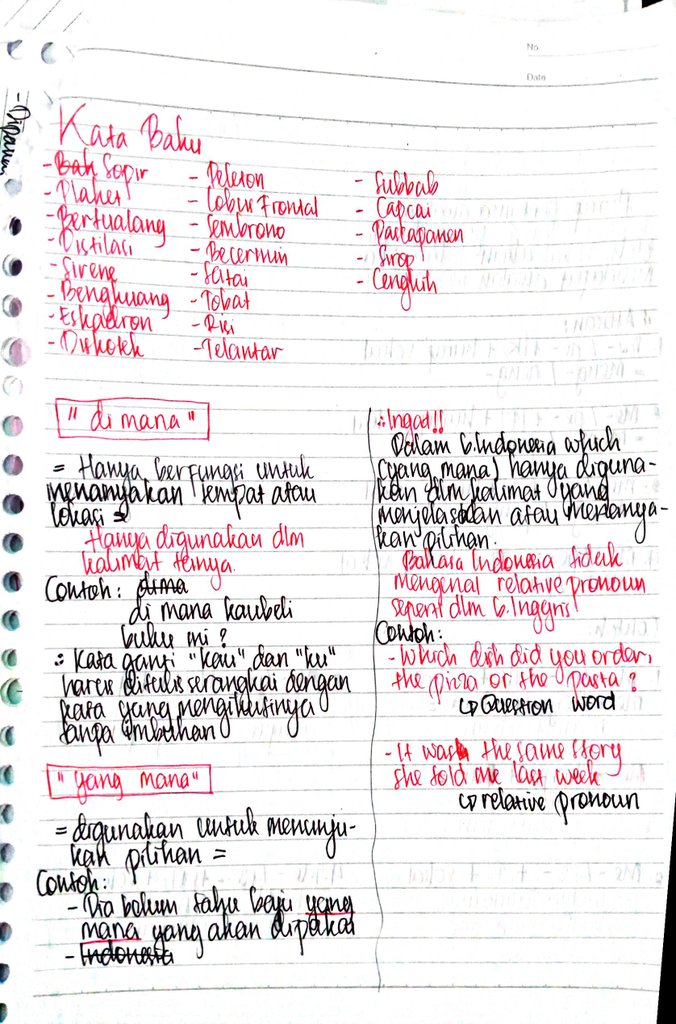 No
Date
Kata Baku
- Bah Sopir
- Plakat
- Bertualang
- Distilasi
- Sirene
- Bengkuang
- Eskadron
- Diskotek
- Peleton
- Lobus Frontal
- Sembrono
- Becermin
- Satai
- Tobat
- Risi
- Telantar
- Subbab
- Capcai
- Pascapanen
- Sirop
- Cengkih
"di mana"
= Hanya berfungsi untuk
menanyakan tempat atau
lokasi =
Hanya digunakan dlm
kalimat tanya.
Contoh: dima
di mana kaubeli
buku ini?
∴ Kata ganti "kau" dan "ku"
harus ditulis serangkai dengan
kata yang mengikutinya
tanpa imbuhan
"yang mana"
= digunakan untuk menunju-
kan pilihan =
Contoh:
- Dia belum tahu baju yang
mana yang akan dipakai
- Indonesia
∴ Ingat!!
Dalam b.Indonesia which
(yang mana) hanya diguna-
kan dlm kalimat yang
menjelaskan atau menanya-
kan pilihan.
Bahasa Indonesia tidak
mengenal relative pronoun
seperti dlm b.Inggris
Contoh:
- Which dish did you order,
the pizza or the pasta?
↳ Question word
- It was the same story
she told me last week
↳ relative pronoun